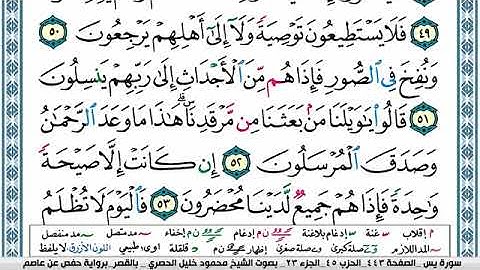 ٤٩ فَلَا يَسْتَطِيعُونَ تَوْصِيَةً وَلَآ إِلَىٰٓ أَهْلِهِمْ يَرْجِعُونَ ٥٠
وَنُفِخَ فِى ٱلصُّورِ فَإِذَا هُم مِّنَ ٱلْأَجْدَاثِ إِلَىٰ رَبِّهِمْ يَنسِلُونَ
٥١ قَالُوا۟ يَٰوَيْلَنَا مَنۢ بَعَثَنَا مِن مَّرْقَدِنَا ۜ هَٰذَا مَا وَعَدَ ٱلرَّحْمَٰنُ
وَصَدَقَ ٱلْمُرْسَلُونَ ٥٢ إِن كَانَتْ إِلَّا صَيْحَةً
وَٰحِدَةً فَإِذَا هُمْ جَمِيعٌ لَّدَيْنَا مُحْضَرُونَ ٥٣ فَٱلْيَوْمَ لَا تُظْلَمُ
م إقلاب غنة إدغام بلاغنة ن م إدغام ن م إخفاء مد متصل مد منفصل
المد اللازم صلة كبرى صلة صغرى ن م إظهار قلقلة اوى طبيعي اللون الأزرق لا يلفظ
سورة يس _ الصفحة ٤٤٣ _ الحزب ٤٥ _ الجزء ٢٣ _ بصوت الشيخ محمود خليل الحصري _ بالقصر _ برواية حفص عن عاصم